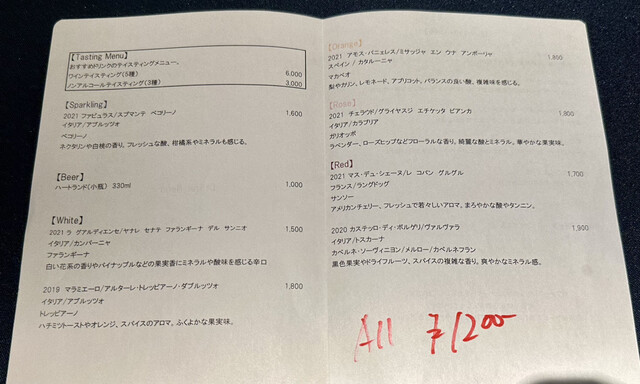 【Tasting Menu】
おすすめドリンクのテイスティングメニュー。
ワインテイスティング(5種) 6,000
ノンアルコールテイスティング(3種) 3,000
【Sparkling】
2021 ファビュラス/スプマンテ ペコリーノ 1,600
イタリア/アブルッツォ
ペコリーノ
ネクタリンや白桃の香り。フレッシュな酸、柑橘系やミネラルも感じる。
【Beer】
ハートランド(小瓶) 330ml 1,000
【White】
2021 ラ グアルディエンセ/ヤナレ セナテ ファランギーナ デル サンニオ 1,500
イタリア/カンパーニャ
ファランギーナ
白い花系の香りやパイナップルなどの果実香にミネラルや酸味を感じる辛口
2019 マラミエーロ/アルターレ・トレッビアーノ・ダブルッツオ 1,800
イタリア/アブルッツォ
トレッビアーノ
ハチミツトーストやオレンジ、スパイスのアロマ。ふくよかな果実味。
【Orange】
2021 アモス・バニェレス/ミサッジャ エン ウナ アンポーリャ 1,800
スペイン / カタルーニャ
マカベオ
梨やカリン、レモネード、アプリコット。バランスの良い酸、複雑味を感じる。
【Rose】
2021 チェラウド/グライヤスジ エチケッタ ビアンカ 1,800
イタリア/カラブリア
ガリオッポ
ラベンダー、ローズヒップなどフローラルな香り。綺麗な酸とミネラル。華やかな果実味。
【Red】
2021 マス・デュ・シェーヌ/レ コパン グルグル 1,700
フランス/ラングドッグ
サンソー
アメリカンチェリー、フレッシュで若々しいアロマ。まろやかな酸やタンニン。
2020 カステッロ・ディ・ボルゲリ/ヴァルヴァラ 1,900
イタリア/トスカーナ
カベルネ・ソーヴィニヨン/メルロー/カベルネフラン
黒色果実やドライフルーツ、スパイスの複雑な香り。爽やかなミネラル感。
All ¥1200-